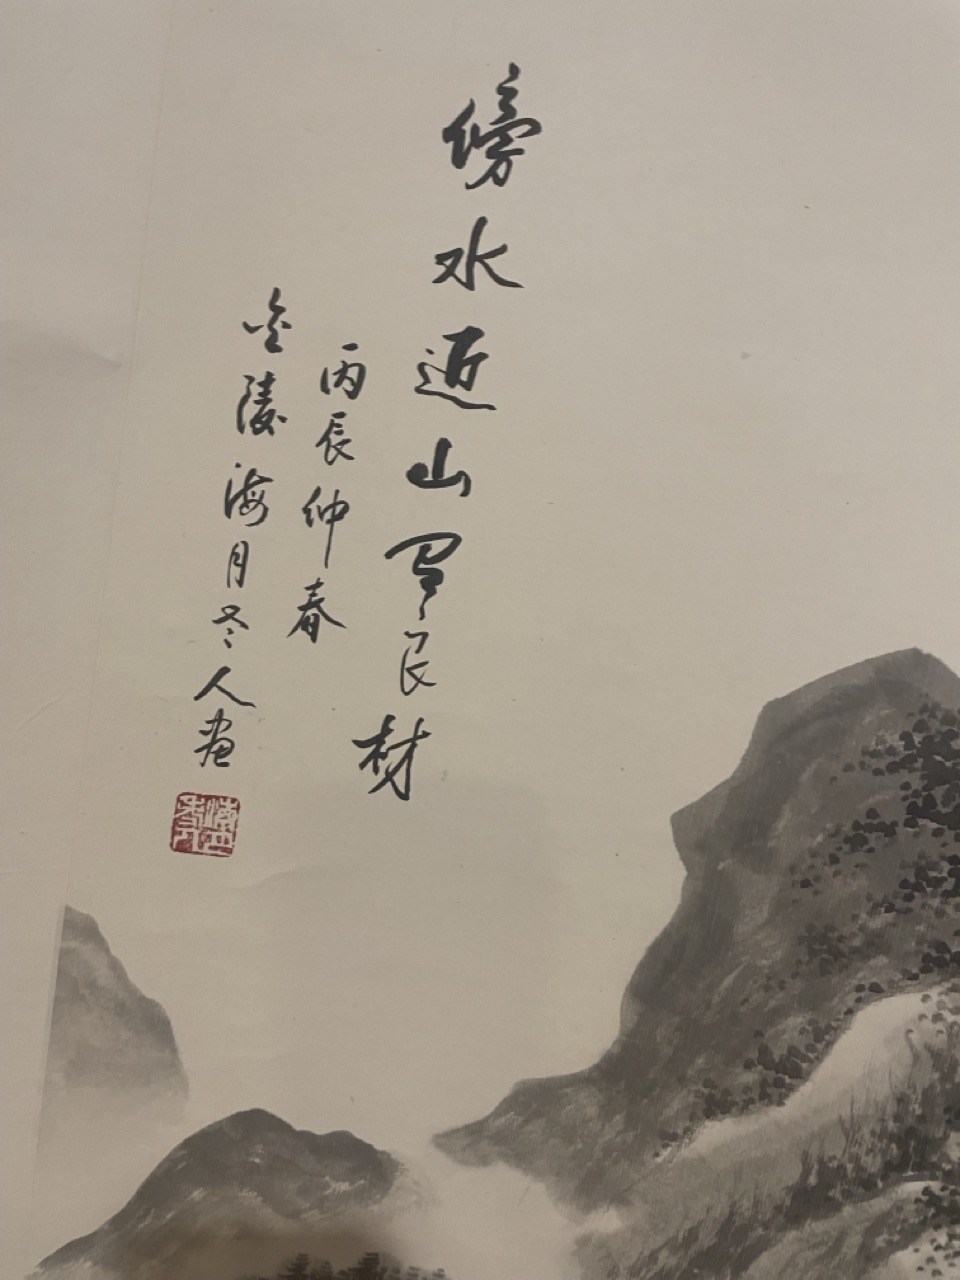 傍水近山多良材
丙辰仲春
金陵海月冬人画